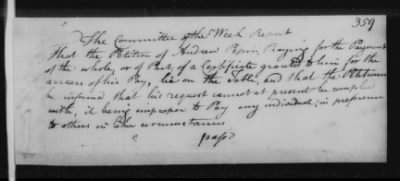 359
The Committee of the Week Report
That the Petition of Andrew Praying for the Payment
of the whole, or of Part of a Certificate granted to him for the
arrears of his Pay, lie on the Table, and that the Petitioner
be informed that his request cannot at present be complied
with, it being improper to Pay any individual, in preference
to others in like circumstances
pass'd